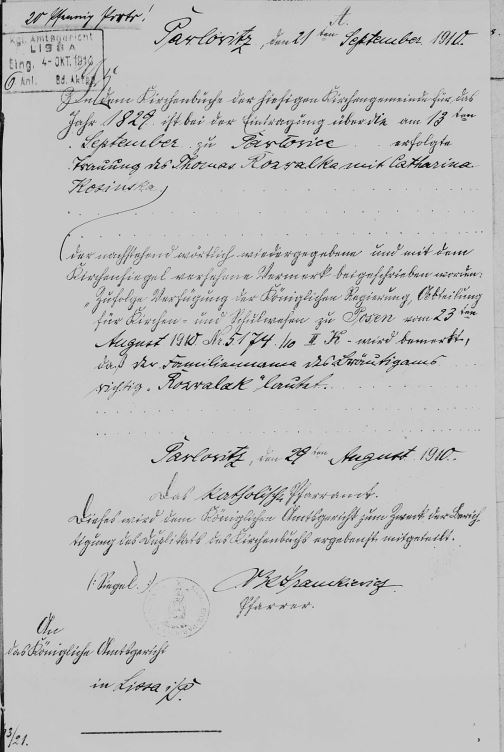 20 Pfennig Porto!
A.
Kgl. Amtsgericht
LISSA
Eing. 4-OKT.1910
Anl. Bd. Akten
Pawlowitz, den 21ten September 1910.
In dem Kirchenbuche der hiesigen Kirchengemeinde für das
Jahr 1829 ist bei der Eintragung über die am 13ten
September zu Pawlowice erfolgte
Trauung des Thomas Kowalka mit Catharina
Kosinska
der nachstehend wörtlich wiedergegebene und mit dem
Kirchensiegel versehene Vermerk beigeschrieben worden:
"Zufolge Verfügung der Königlichen Regierung, Abteilung
für Kirchen- und Schulwesen zu Posen vom 23ten
August 1910 Nr 5174/10 II K- wird bemerkt,
daß der Familienname des Bräutigams
richtig "Kowalak" lautet.
Pawlowitz, den 29ten August 1910.
Das katholische Pfarramt.
Dieses wird dem Königlichen Amtsgericht zum Zweck der Berich-
tigung des Duplikats des Kirchenbuchs ergebenst mitgeteilt.
(: Siegel :)
Pfarrer.
An
das Königliche Amtsgericht
in Lissa i/P